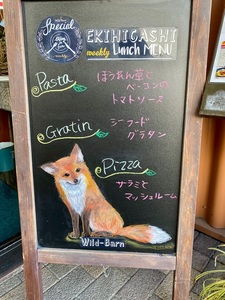 Special
weekly
EKIHIGASHI
weekly Lunch MENU
Pasta
ほうれん草と
ベーコンの
トマトソース
Gratin
シーフード
グラタン
Pizza
サラミと
マッシュルーム
Wild-Barn